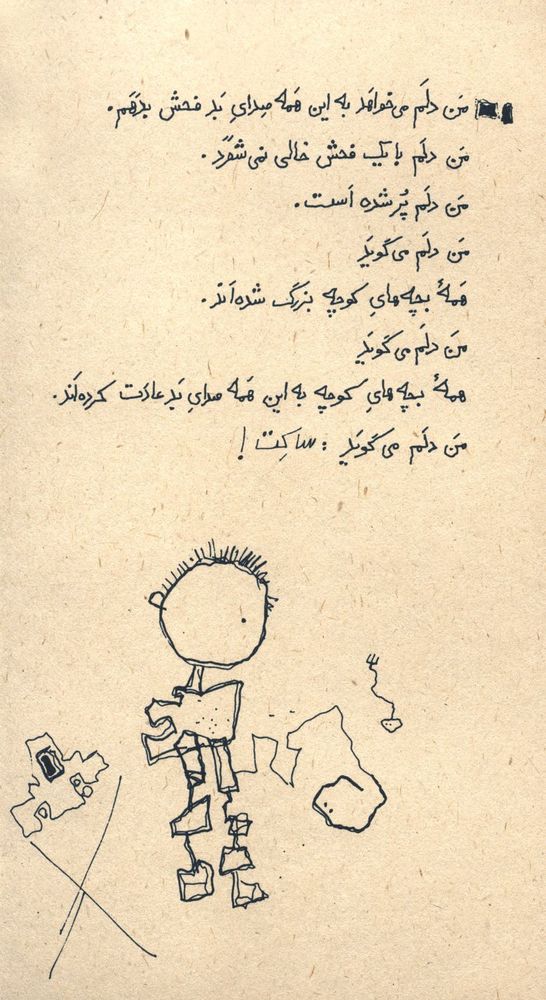 مَن دلَم می‌خواهَد به این هَمه صِدایِ بَد فحش بدَهَم.
مَن دلَم با یک فحش خالی نمی‌شَوَد.
مَن دلَم پُر شده اَست.
مَن دلَم می‌گویَد
هَمهٔ بچه‌هایِ کوچه بزرگ شده‌اَند.
مَن دلَم می‌گویَد
همهٔ بچه‌هایِ کوچه به این هَمه صدایِ بَد عادَت کرده‌اَند.
مَن دلَم می‌گویَد : ساکِت !